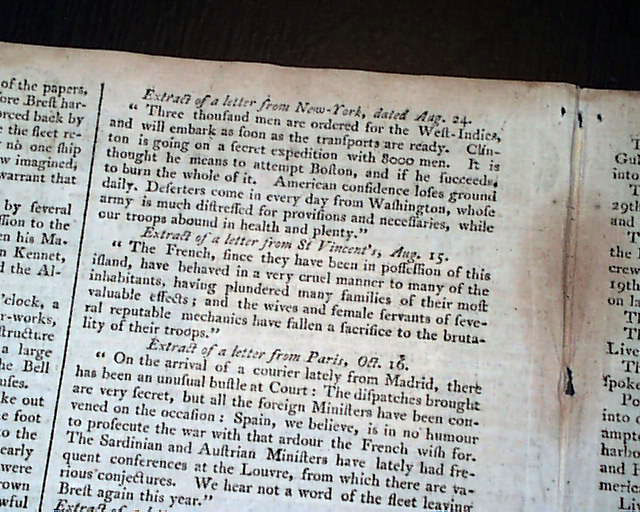 of the papers,
fore Brest har-
orced back by
e the fleet re-
no one ship
w imagined;
warrant that
by several
ssion to the
en his Ma-
n Kennet,
d the Al-
'clock, a
r-works,
structure
a large
he Bell
uses.
ke out
e foot
to the
early
were
rown
wful
Extract of a letter from New-York, dated Aug. 24.
" Three thousand men are ordered for the West-Indies,
and will embark as soon as the transports are ready. Clin-
ton is going on a secret expedition with 8000 men. It is
thought he means to attempt Boston, and if he succeeds,
to burn the whole of it. American confidence loses ground
daily. Deserters come in every day from Washington, whose
army is much distressed for provisions and necessaries, while
our troops abound in health and plenty."
Extract of a letter from St Vincent's, Aug. 15.
" The French, since they have been in possession of this
island, have behaved in a very cruel manner to many of the
inhabitants, having plundered many families of their most
valuable effects; and the wives and female servants of seve-
ral reputable mechanics have fallen a sacrifice to the bruta-
lity of their troops."
Extract of a letter from Paris, Oct. 16.
" On the arrival of a courier lately from Madrid, there
has been an unusual bustle at Court: The dispatches brought
are very secret, but all the foreign Ministers have been con-
vened on the occasion: Spain, we believe, is in no humour
to prosecute the war with that ardour the French wish for.
The Sardinian and Austrian Ministers have lately had fre-
quent conferences at the Louvre, from which there are va-
rious conjectures. We hear not a word of the fleet leaving
Brest again this year."
Extract of a
Gul
into
29th
and
T
the
crew
19th
on
T
Live
Th
spok
Po
into
ampt
harbo
and
meric
Liv